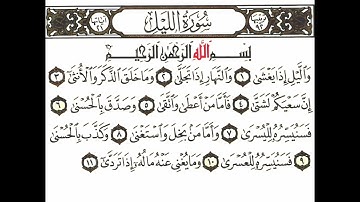 سُورَةُ اللَّيْلِ
بِسْمِ اللَّهِ الرَّحْمَٰنِ الرَّحِيمِ
وَالَّيْلِ إِذَا يَغْشَىٰ ١ وَالنَّهَارِ إِذَا تَجَلَّىٰ ٢ وَمَا خَلَقَ الذَّكَرَ وَالْأُنثَىٰ ٣
إِنَّ سَعْيَكُمْ لَشَتَّىٰ ٤ فَأَمَّا مَنْ أَعْطَىٰ وَاتَّقَىٰ ٥ وَصَدَّقَ بِالْحُسْنَىٰ ٦
فَسَنُيَسِّرُهُ لِلْيُسْرَىٰ ٧ وَأَمَّا مَن بَخِلَ وَاسْتَغْنَىٰ ٨ وَكَذَّبَ بِالْحُسْنَىٰ
٩ فَسَنُيَسِّرُهُ لِلْعُسْرَىٰ ١٠ وَمَا يُغْنِي عَنْهُ مَالُهُ إِذَا تَرَدَّىٰ ١١